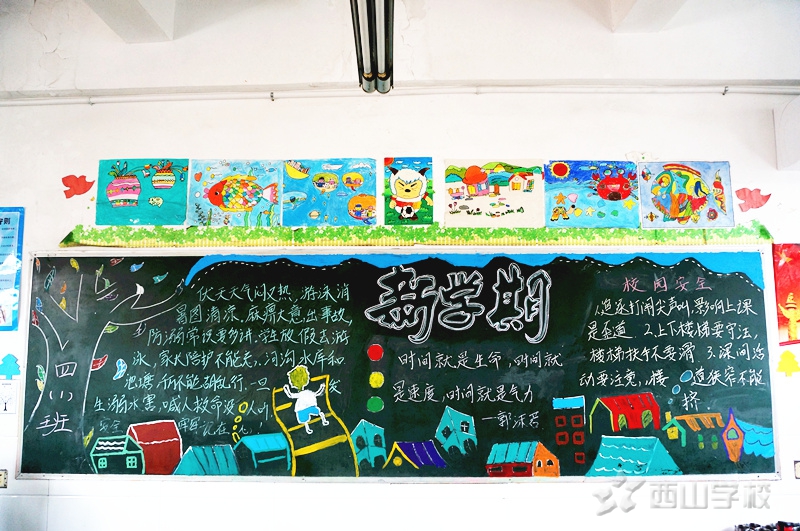 新学期
四(1)班
伏天天气闷又热,游泳消
暑图清凉,麻痹大意出事故,
防溺常识要多讲,学生放假去游
泳,家长陪护不能走,河沟水库和
池塘,千万不能乱行,一旦发
生溺水害,喊人救命没人叫
安全
时间就是生命,时间就
是速度,时间就是气力
—郭沫若
校园安全
1.追逐打闹尖声叫影响上课
是歪道 2.上下楼梯要守法,
楼梯扶手不要滑 3.课间活
动要注意,楼道狭窄不能
挤
西山学校